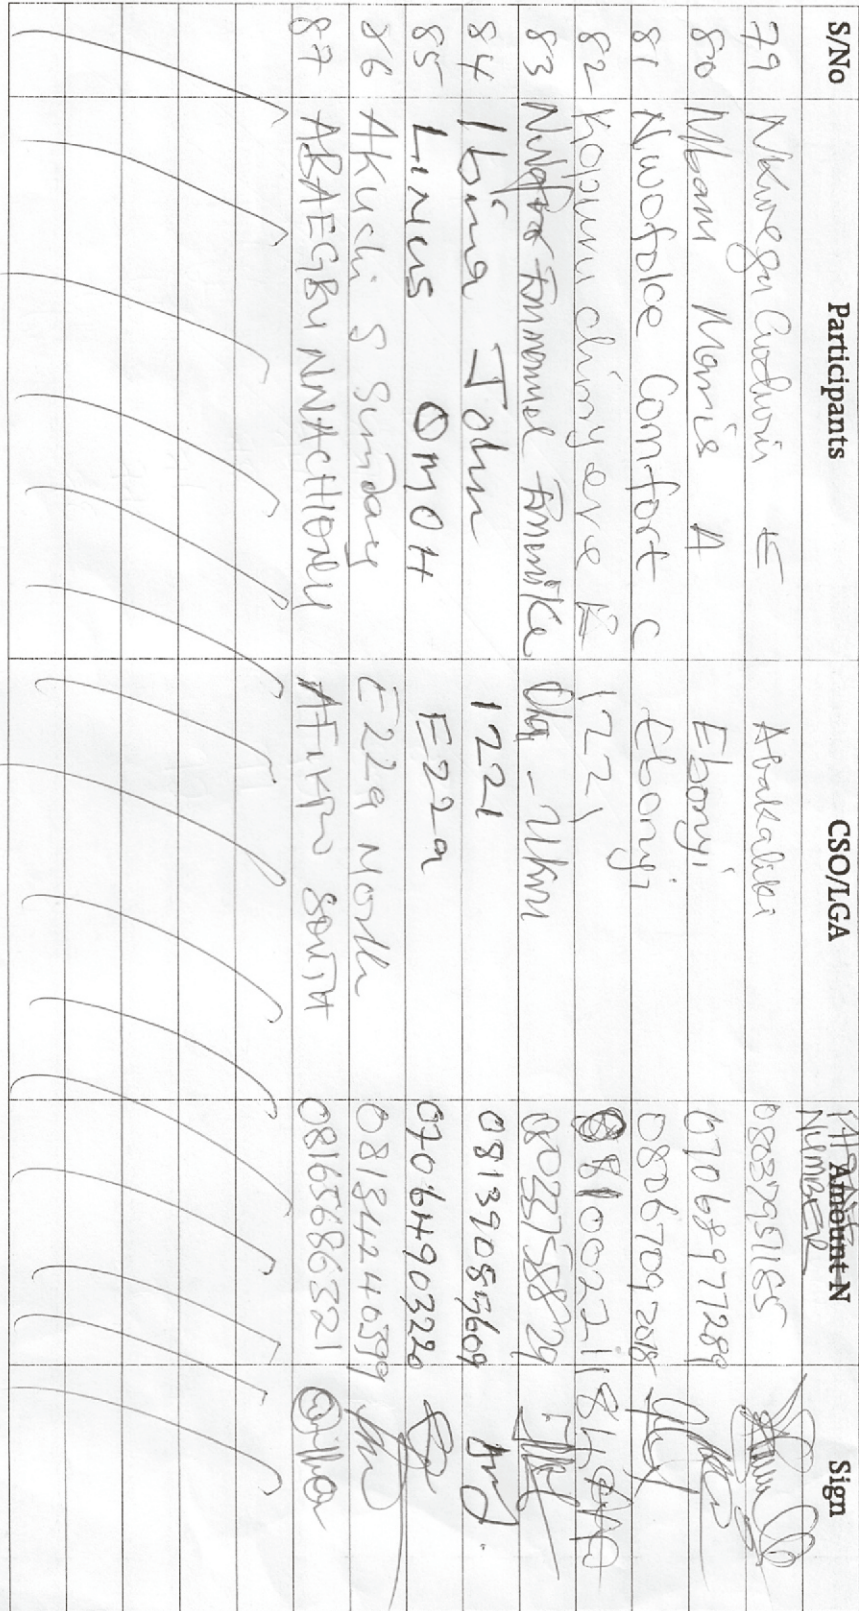 S/No Participants CSO/LGA Amount N Sign
NUMBER
79 Nkwegu Godwin E Abakaliki 08037951165
80 Mbam Morris A Ebonyi 07068977289
81 Nwofoke Comfort C Ebonyi 08067092018
82 Kalunu chinyere E 1221 08100221184
83 Emmanuel Emenike 08033758829
84 Ibina John 1221 08139085609
85 LINUS OMOH Ezza 07064490320
86 Akuchi S Sunday Ezza North 08134240599
87 ABAEGBU NNACHIONU AFIKPO SOUTH 08165686321